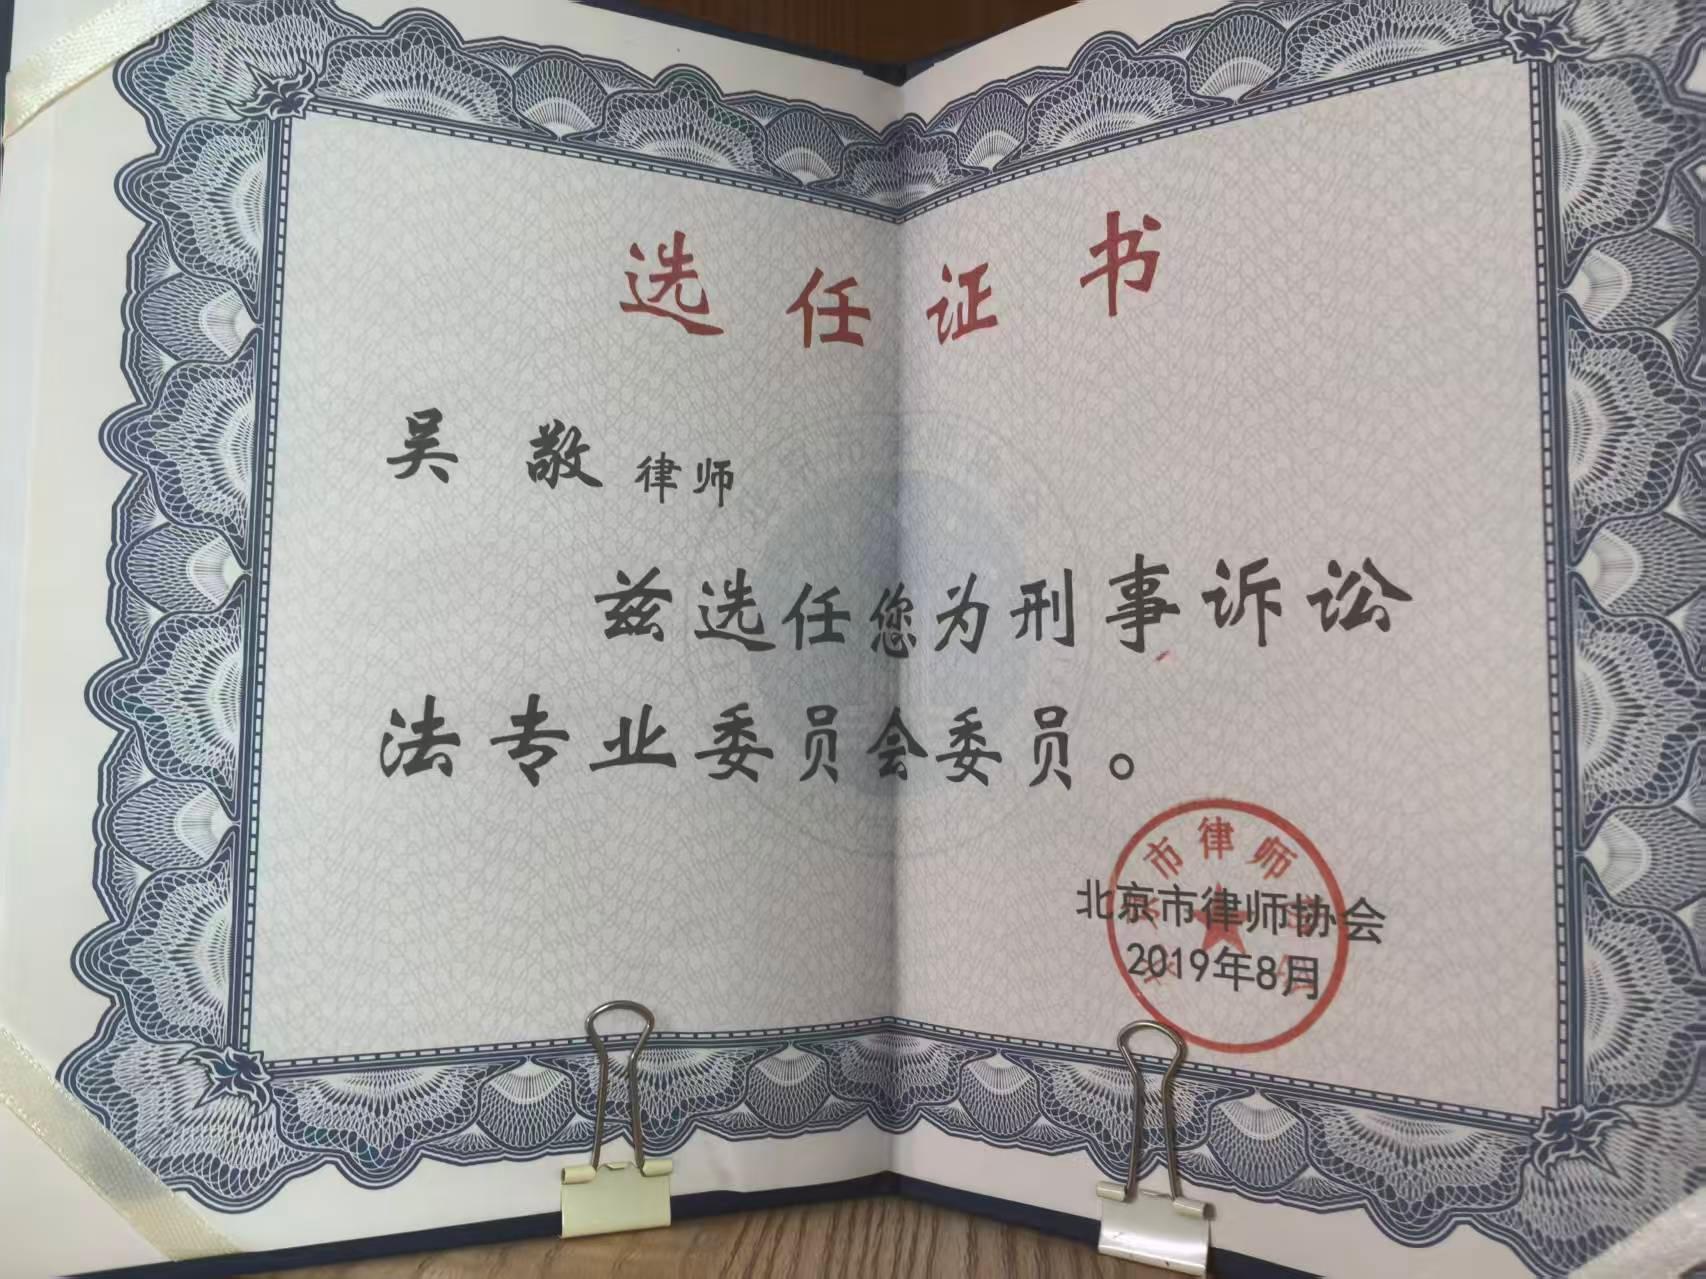 选任证书
吴敬律师
兹选任您为刑事诉讼
法专业委员会委员。
北京市律师协会
2019年8月
市律师